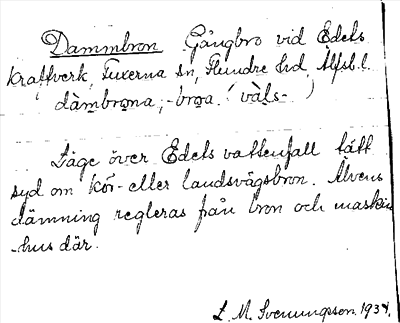 Dammbron Gångbro vid Edets
kraftverk, Fuxerna sn, Flundre hd, Älfsb. l.
dàmbrona, -broa. (vàls- )
Läge över Edets vattenfall tätt
syd om kör- eller landsvägsbron. Älvens
dämning regleras från bron och maskin
-hus där.
L. M. Svenungsson. 1934.